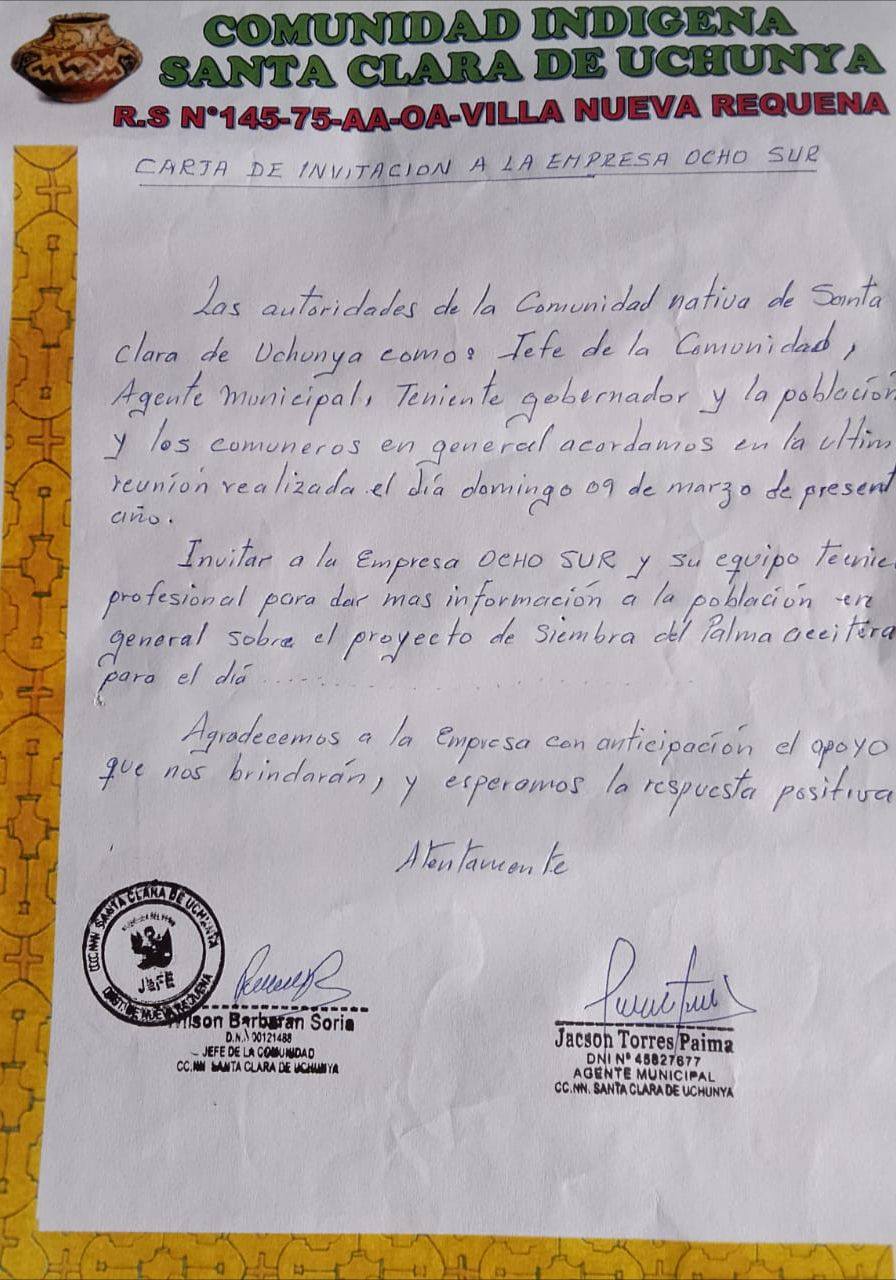 COMUNIDAD INDIGENA
SANTA CLARA DE UCHUNYA
R.S N°145-75-AA-OA-VILLA NUEVA REQUENA
CARTA DE INVITACION A LA EMPRESA OCHO SUR
Las autoridades de la Comunidad nativa de Santa
Clara de Uchunya como: Jefe de la Comunidad,
Agente Municipal, Teniente gobernador y la población
y los comuneros en general acordamos en la ultim
reunión realizada el día domingo 09 de marzo de present
año.
Invitar a la Empresa OCHO SUR y su equipo tecnic
profesional para dar mas información a la población en
general sobre el proyecto de Siembra del Palma aceitera
para el diá ........................
Agradecemos a la Empresa con anticipación el apoyo
que nos brindarán, y esperamos la respuesta positiva
Atentamente
CCC.NN SANTA CLARA DE UCHUNYA
JEFE
DIST. DE NUEVA REQUENA
Wilson Barbaran Soria
D.N.I 00121488
JEFE DE LA COMUNIDAD
CC.NN SANTA CLARA DE UCHUNYA
Jacson Torres Paima
DNI N° 45827677
AGENTE MUNICIPAL
CC.NN. SANTA CLARA DE UCHUNYA